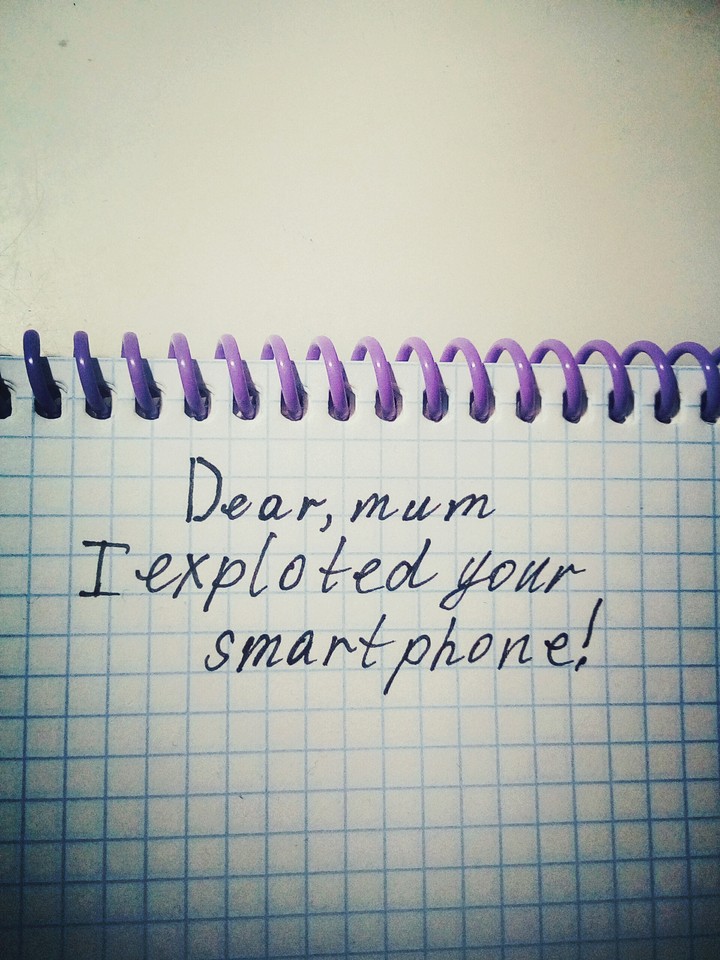 Dear, mum
I exploted your
smartphone!